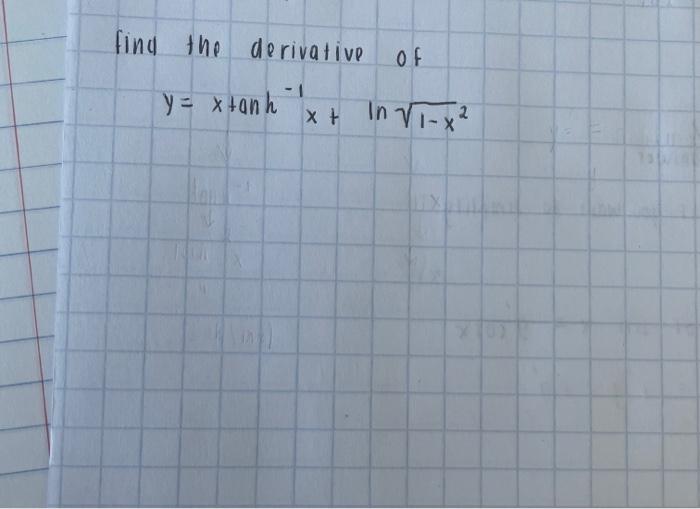 find the derivative of
y = x tanh⁻¹ x + ln √1-x²